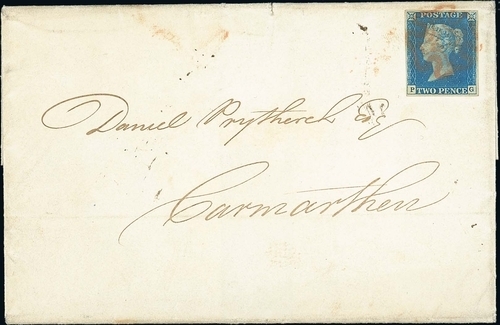 POSTAGE
P TWO PENCE G
Daniel Prytherch Esq
Carmarthen